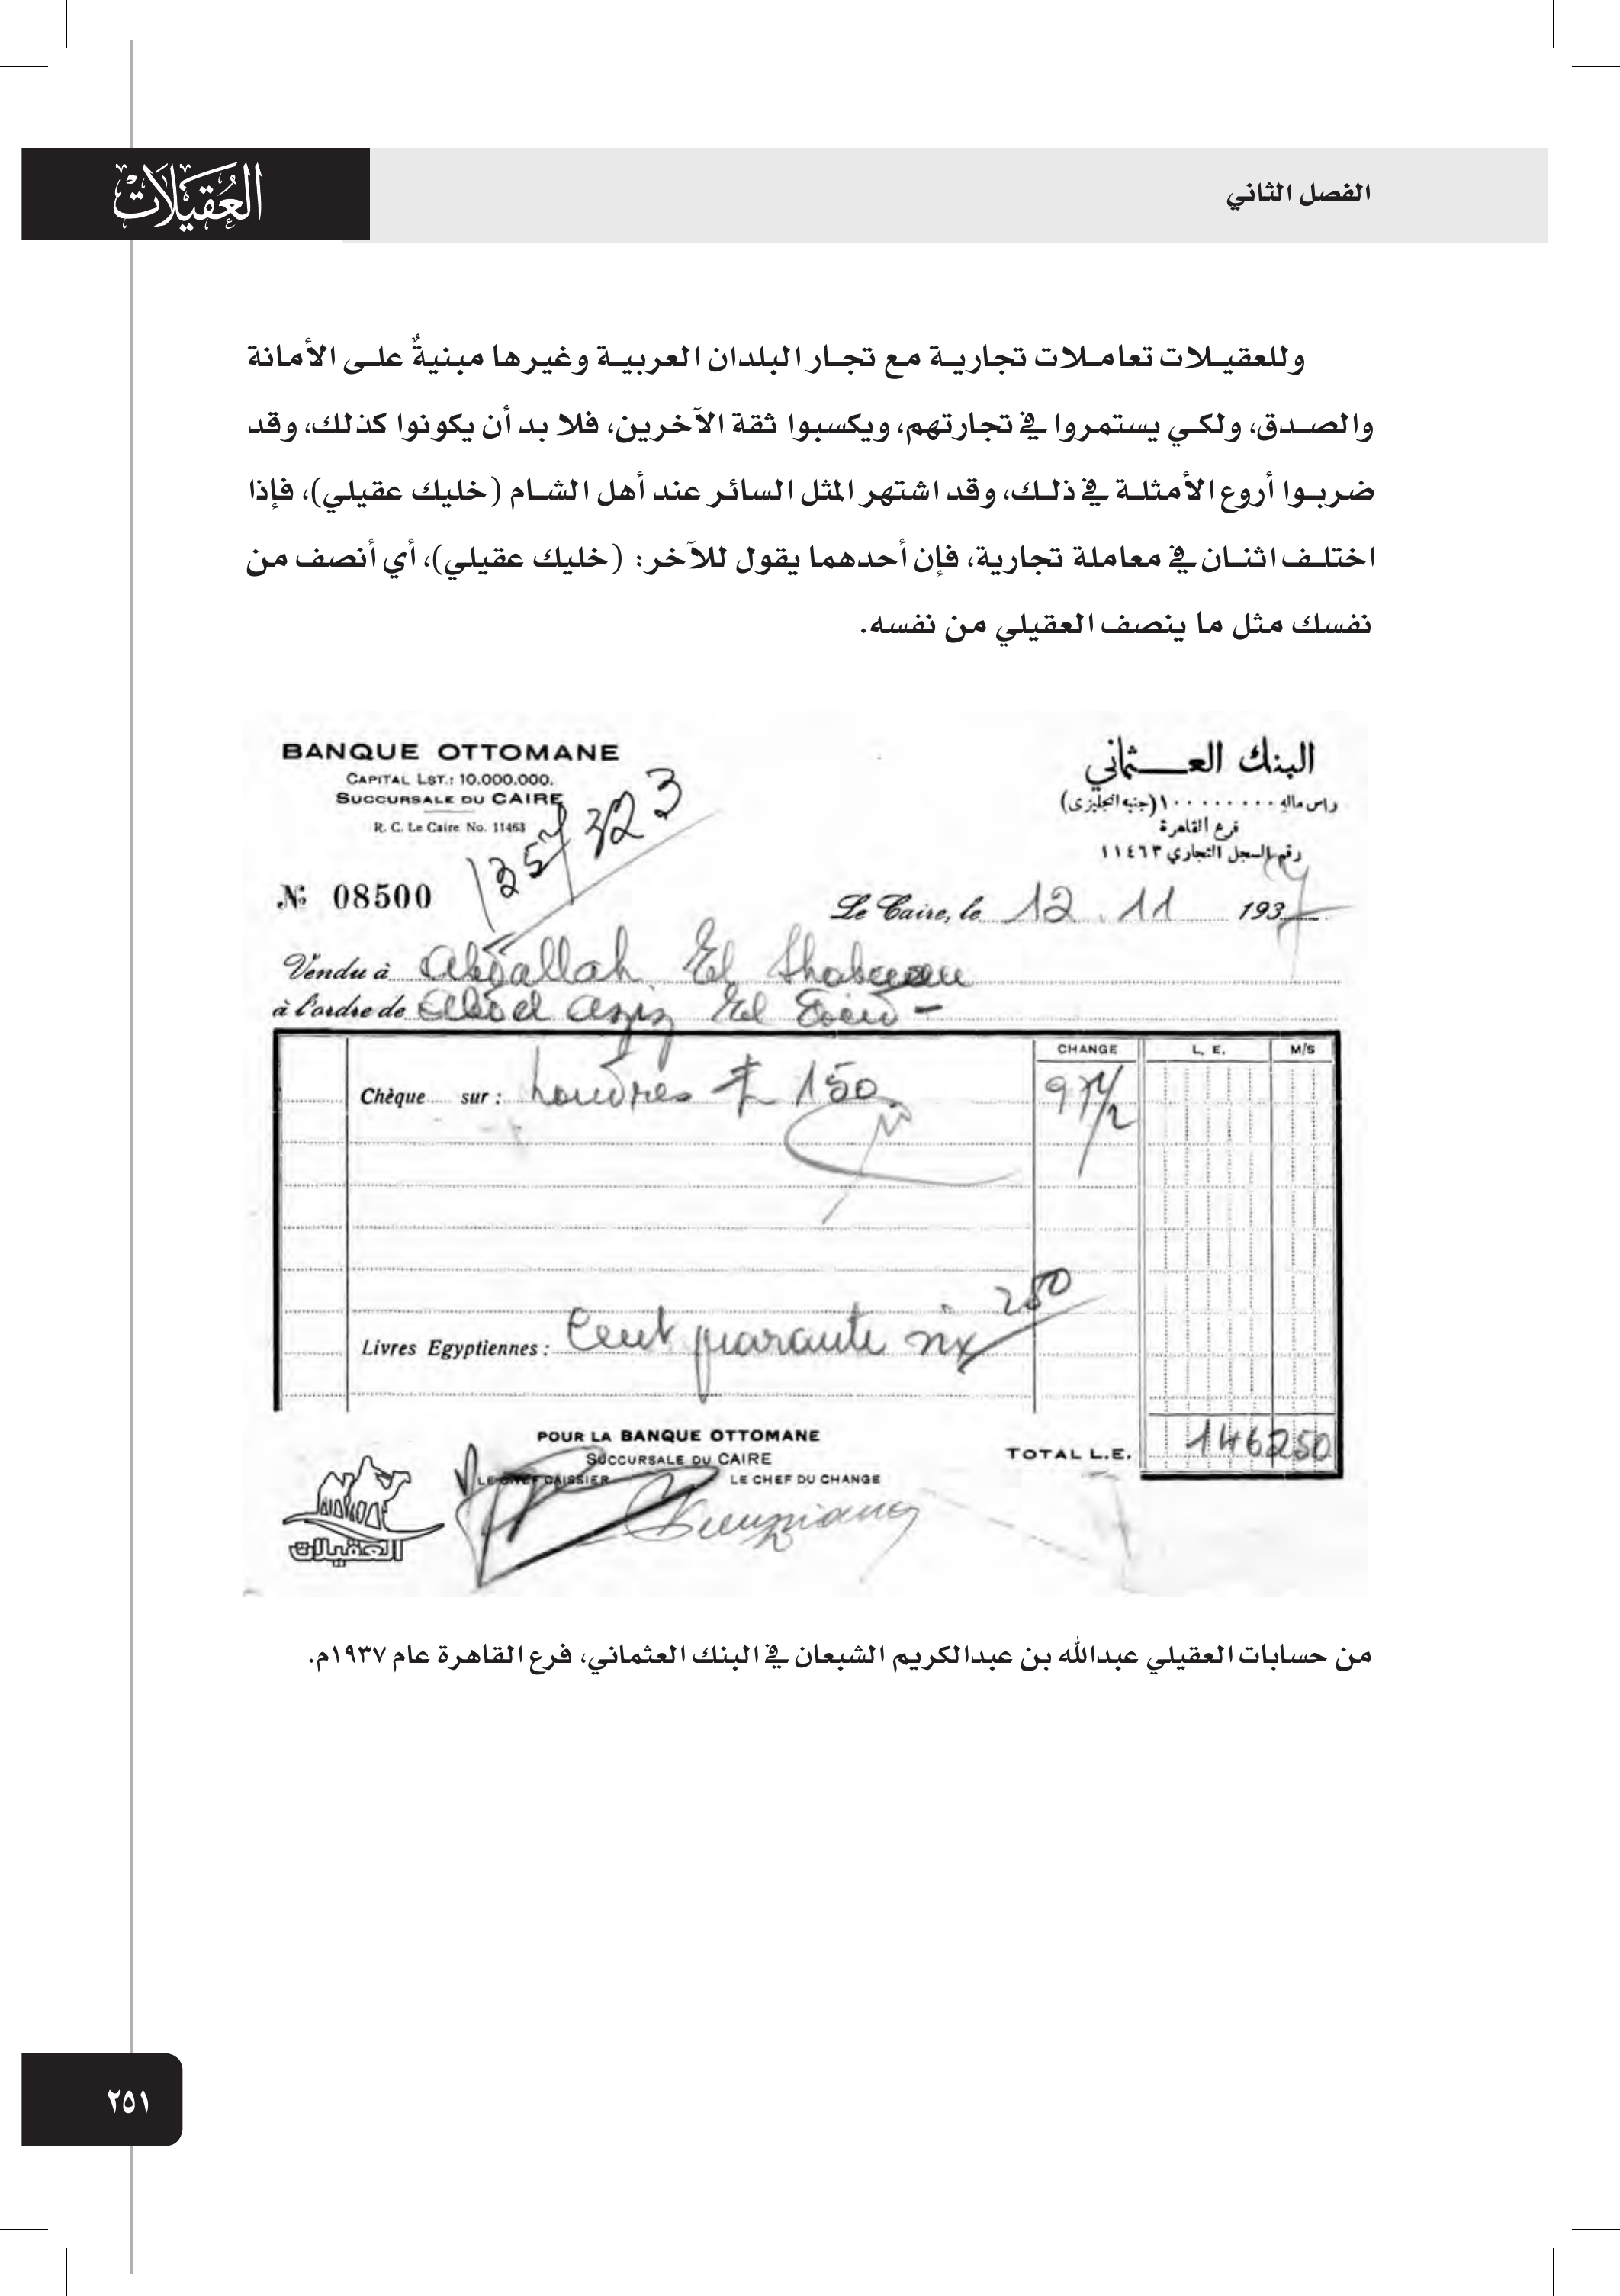 الفصل الثاني
العُقيلات
وللعقيلات تعاملات تجارية مع تجار البلدان العربية وغيرها مبنيةٌ على الأمانة
والصدق، ولكي يستمروا في تجارتهم، ويكسبوا ثقة الآخرين، فلا بد أن يكونوا كذلك، وقد
ضربوا أروع الأمثلة في ذلك، وقد اشتهر المثل السائر عند أهل الشام (خليك عقيلي)، فإذا
اختلف اثنان في معاملة تجارية، فإن أحدهما يقول للآخر: (خليك عقيلي)، أي أنصف من
نفسك مثل ما ينصف العقيلي من نفسه.
BANQUE OTTOMANE
CAPITAL LST.: 10.000.000.
SUCCURSALE DU CAIRE
R. C. Le Caire No. 11463
البنك العثماني
راس ماله ١٠٠٠٠٠٠٠ (جنيه انجليزى)
فرع القاهرة
رقم السجل التجاري ١١٤٦٣
323
№ 08500
Le Caire, le 12.11 1937
Vendu à Abdallah El Shabaan
à l'ordre de Abdel Aziz El
CHANGE L. E. M/S
Chèque sur: Londres £ 150 97 1/2
Livres Egyptiennes: Cent quarante six 250
POUR LA BANQUE OTTOMANE
SUCCURSALE DU CAIRE
LE CHEF CAISSIER LE CHEF DU CHANGE
TOTAL L.E. 146250
العقيلات
من حسابات العقيلي عبدالله بن عبدالكريم الشبعان في البنك العثماني، فرع القاهرة عام ١٩٣٧م.
٢٥١